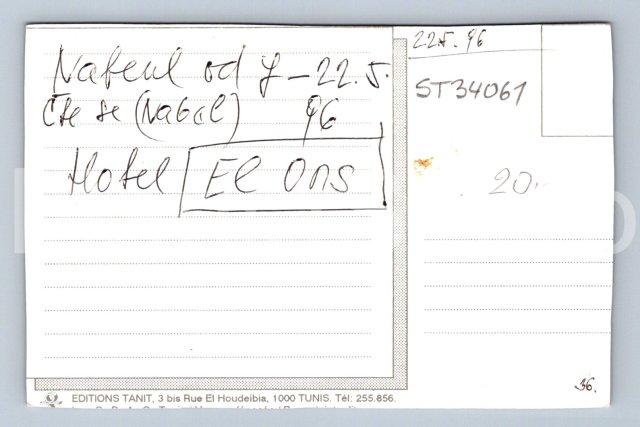 Nabeul od 7-22.5.
Čte se (Nabél) 96
Hotel El Ons
22.5. 96
ST34061
20,-
36.
EDITIONS TANIT, 3 bis Rue El Houdeibia, 1000 TUNIS. Tél: 255.856.